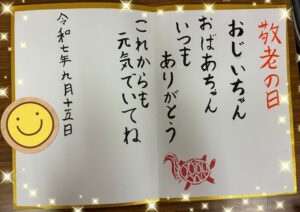 敬老の日
おじいちゃん
おばあちゃん
いつも
ありがとう
これからも
元気でいてね
令和七年九月十五日